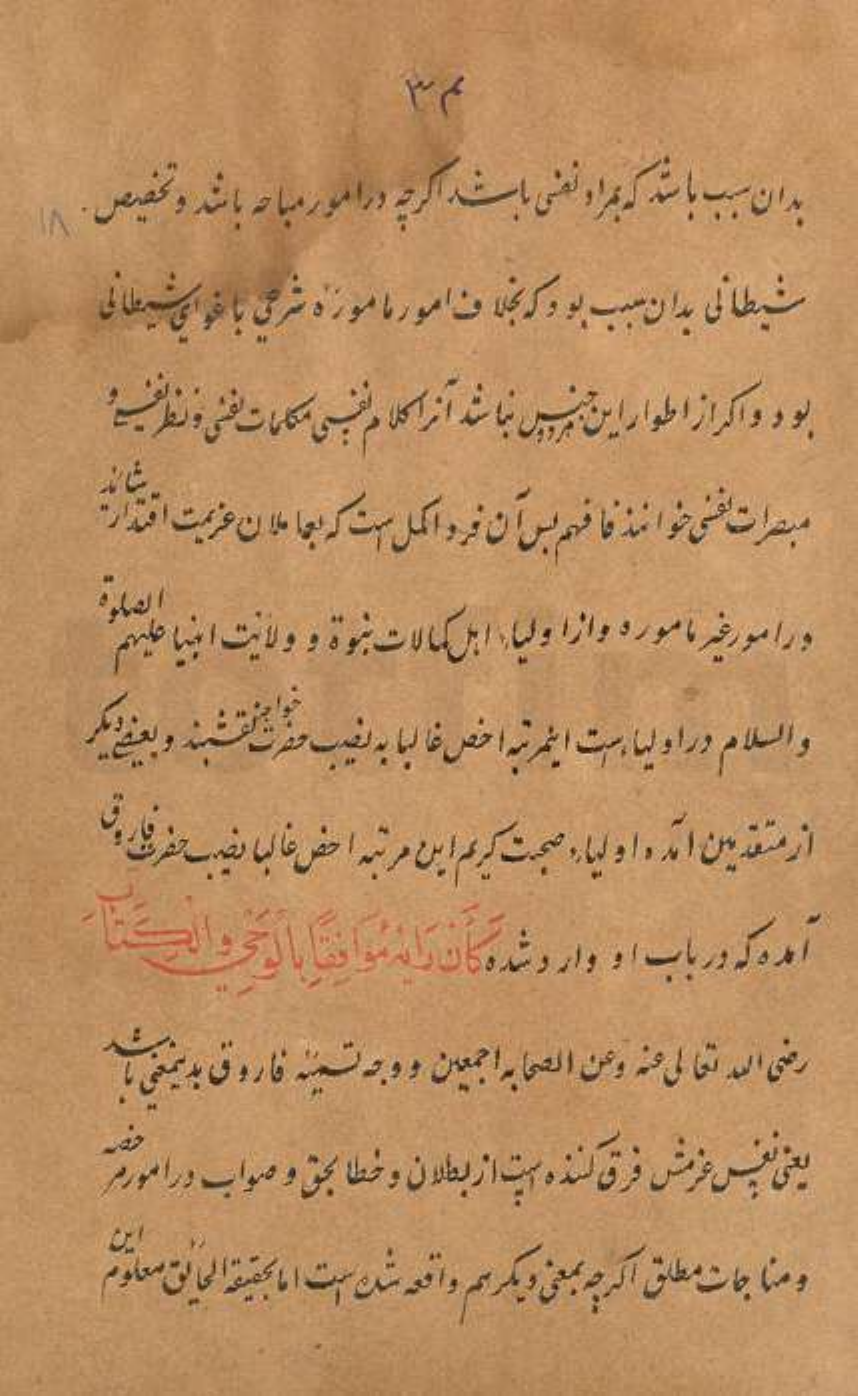 م۳
۱۸
بدان سبب باشد که بمراد نفسی باشد اکرچه در امور مباحه باشد و تخصیص
شیطانی بدان سبب بود که بخلاف امور ماموره شرعی باغوای شیطانی
بود و اکر از اطوار این جنس نباشد آنرا کلام نفسی مکلمات نفسی و نظر نفسی و
مبصرات نفسی خوانند فافهم بس آن فرد اکمل است که بعاملان عزیمت اقتدار شاند
در امور غیر ماموره و از اولیاء اهل کمالات نبوة و ولایت انبیا علیهم الصلوة
والسلام در اولیاء است اینمرتبه اخص غالبا به نصیب حضرت خواجه نقشبند و بعضی دیکر
از متقدمین آمده اولیاء صحبت کریم این مرتبه اخص غالبا نصیب حضرت فاروق
آمده که در باب او وارد شده كَانَ رَايُهُ مُوَافِقًا بِالْوَحْيِ وَالْكِتَابِ
رضی الله تعالی عنه وعن الصحابه اجمعین و وجه تسمیّه فاروق بدینمعنی باشد
یعنی نفس عزمش فرق کننده است از بطلان و خطا بحق و صواب در امور مرخصه
و مناجات مطلق اکرچه بمعنی دیکر هم واقعه شده است اما بحقیقة الحقائق معلوم این